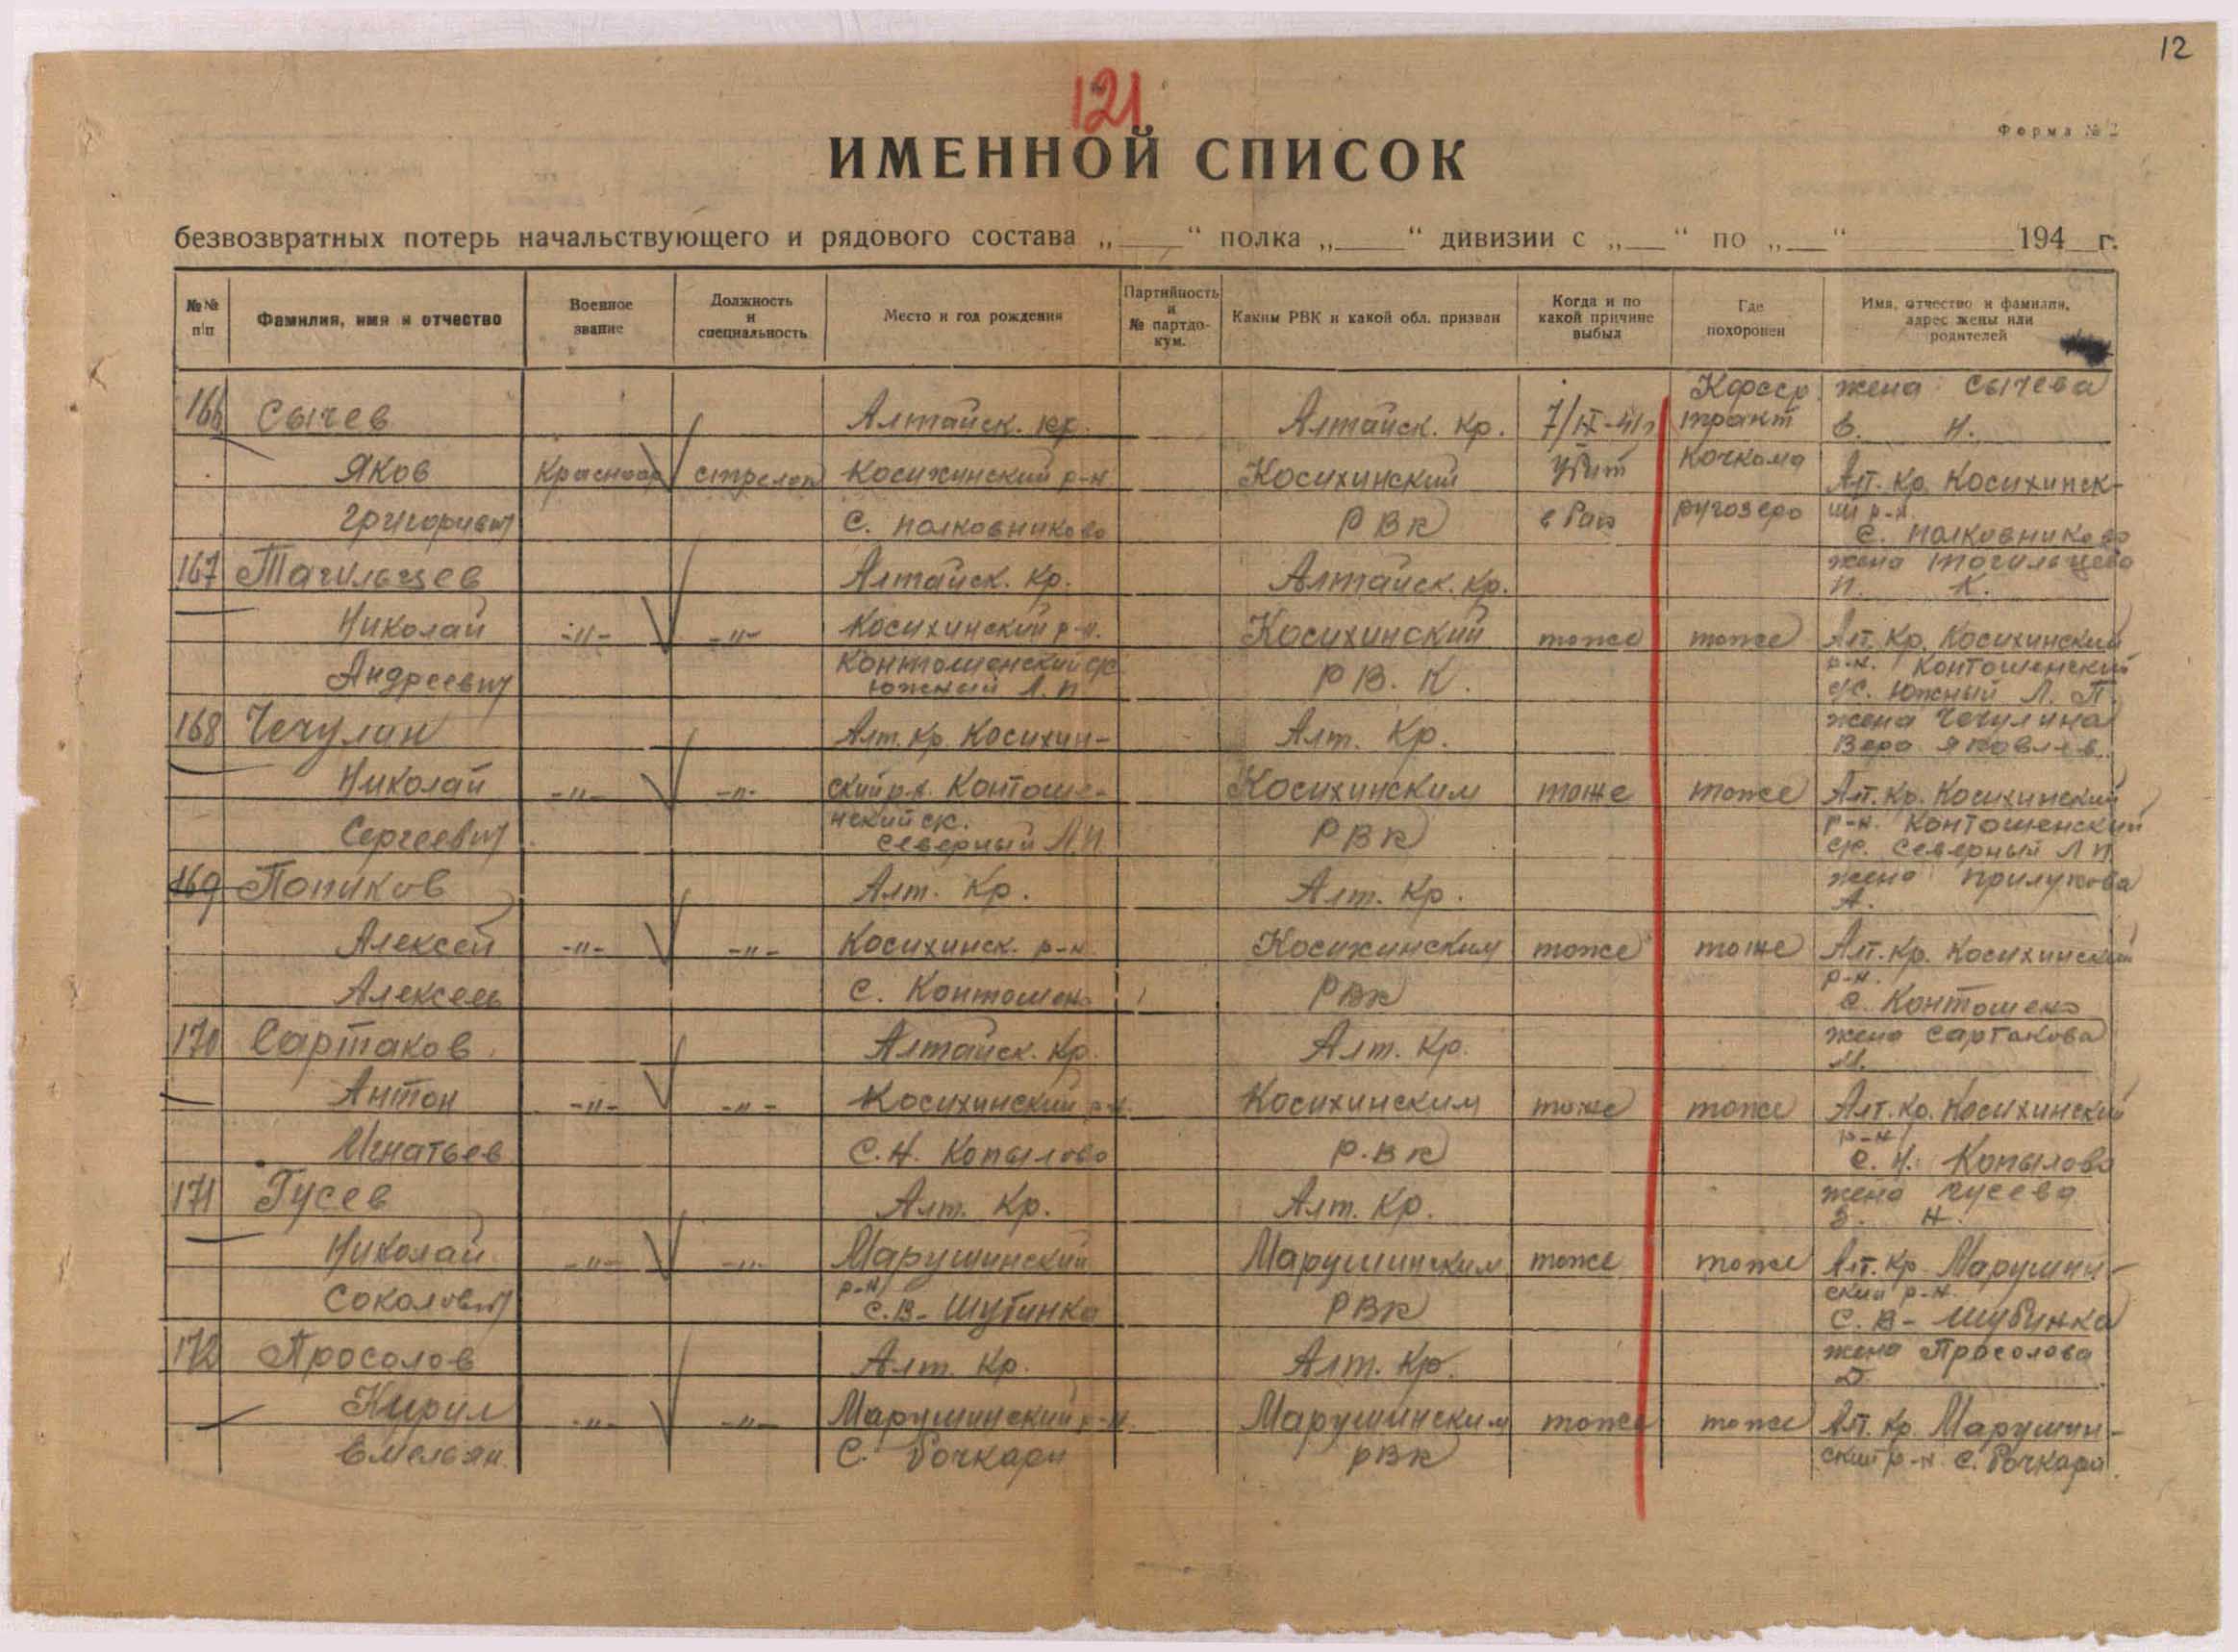 12
121
Форма № 2
ИМЕННОЙ СПИСОК
безвозвратных потерь начальствующего и рядового состава „____“ полка „____“ дивизии с „__“ по „__“ ________194__г.
№№ п/п
Фамилия, имя и отчество
Военное звание
Должность и специальность
Место и год рождения
Партийность и № партдо-кум.
Каким РВК и какой обл. призван
Когда и по какой причине выбыл
Где похоронен
Имя, отчество и фамилия, адрес жены или родителей
166 Сычев Алтайск. кр. Алтайск. кр. 7/IX-41г Кфсср тракт жена Сычева
Н.
Яков Красноар стрелок Косихинский р-н Косихинский убит Кочкома Алт. Кр. Косихинск-
Григориевич С. Полковниково РВК ругозеро ий р-н.
С. Полковниково
167 Тагильцев Алтайск. Кр. Алтайск. Кр. жена
К.
Николай -"- -"- Косихинский р-н. Косихинский тоже тоже Алт. Кр. Косихинский
Андреевич Контошенский с/с РВ. К. р-н. Контошенский
Южный Л. П с/с. Южный Л. П.
168 Чечулин Алт. Кр. Косихин- Алт. Кр. жена Чечулина
Вера Яковлев.
Николай -"- -"- ский р-н. Контоше- Косихинским тоже тоже Алт. Кр. Косихинский
Сергеевич нский с/с. РВК р-н. Контошенский
Северный Л.П с/с. Северный Л П
169 Попиков Алт. Кр. Алт. Кр. жена Прилукова
А.
Алексей -"- -"- Косихинск. р-н. Косихинским тоже тоже Алт. Кр. Косихинский
р-н.
Алексеев С. Контошено РВК С. Контошено
170 Сартаков Алтайск. Кр. Алт. Кр. жена Сартакова
М.
Антон -"- -"- Косихинский р-н. Косихинским тоже тоже Алт. Кр. Косихинский
р-н
Игнатьев С. Н. Копылово Р.ВК С. Н. Копылово
171 Гусев Алт. Кр. Алт. Кр. жена Гусева
Н.
Николай -"- -"- Марушинский Марушинским тоже тоже Алт. Кр Марушин-
р-н ский р-н.
Соколович С. В- Шубинка РВК С. В- Шубинка
172 Просолов Алт. Кр. Алт. Кр. жена Просолова
Кирил -"- -"- Марушинский р-н. Марушинским тоже тоже Алт. Кр Марушин-
Емельян. С. Бочкари РВК ский р-н С. Бочкари.